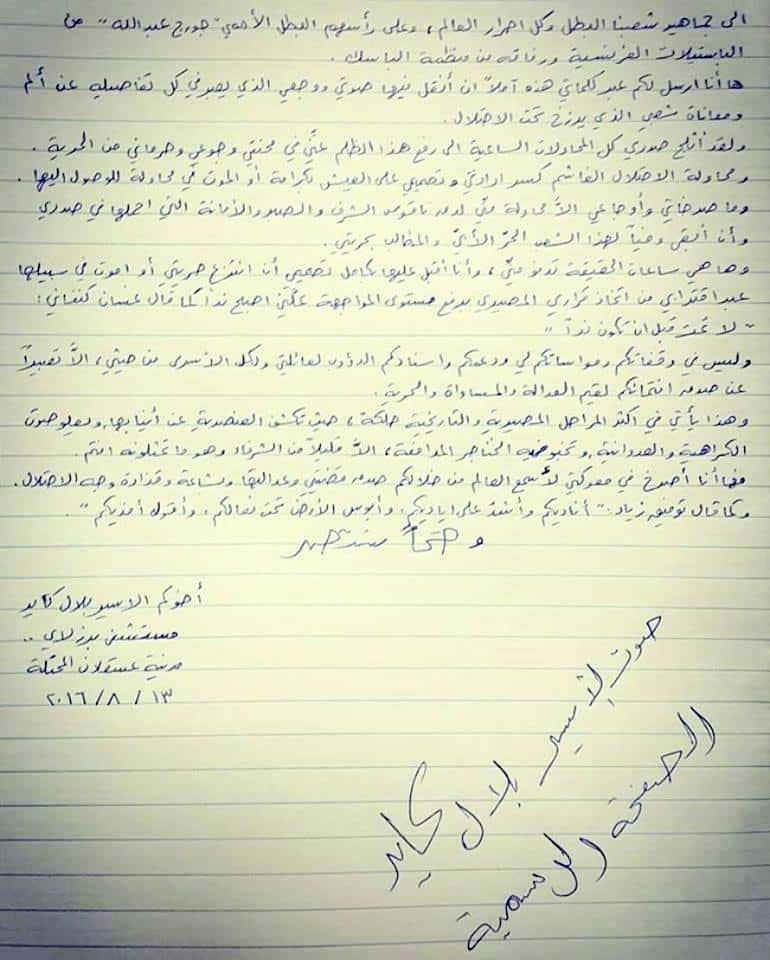 الى جماهير شعبنا البطل وكل احرار العالم، وعلى رأسهم البطل الأممي "جورج عبدالله" من
الباستيلات الفرنسية ورفاقه من منظمة الباسك.
ها أنا ارسل لكم عبر كلماتي هذه آملاً ان أنقل فيها صوتي ووجعي الذي يعبر في كل تفاصيله عن ألم
ومعاناة شعبي الذي يرزخ تحت الاحتلال.
ولقد أثلج صدري كل المحاولات الساعية الى رفع هذا الظلم عنّي في محنتي وجوعي وحرماني من الحرية.
ومحاولة الاحتلال الغاشم كسر ارادتي وتصميمي على العيش بكرامة أو الموت في محاولة للوصول اليها.
وما صرخاتي وأوجاعي الاّ محاولة منّي لدق ناقوس الشرف والصبر والأمانة التي احملها في صدري
وأن أبقى وفيّاً لهذا الشعب الحرّ الأبيّ والمطالب بحريتي.
وها هي ساعات الحقيقة تدنو منّي، وأنا أقبل عليها بكامل تصميمي أن انتزع حريتي أو اموت في سبيلها
عبر اقترابي من اتخاذ قراري المصيري برفع مستوى المواجهة علّني اصبح نداً كما قال غسان كنفاني:
"لا تمت قبل ان تكون نداً"
وليس في وقفاتكم ومواساتكم لي ودعمكم واسنادكم الدؤوب لعائلتي ولكل الأسرى من حيثي، الاّ تعبيراً
عن صدق انتمائكم لقيم العدالة والمساواة والحرية.
وهذا يأتي في اكثر المراحل المصيرية والتاريخية حلكة، حيث تكشف العنصرية عن أنيابها، ويعلو صوت
الكراهية والعدوانية وتخبو فيه الحناجر المدافعة، الاّ قليلاً من الشرفاء وهو ما تمثلونه انتم.
فها أنا أصرخ في معركتي لأسمع العالم من خلالكم صدق قضيتي وعدالتها وبشاعة وقذارة وجه الاحتلال.
وكما قال توفيق زياد: "أناديكم وأشد على اياديكم، وأبوس الأرض تحت نعالكم، وأقول أفديكم".
وحتماً سننتصر
أخوكم الاسير بلال كايد
مستشفى برزلاي ..
مدينة عسقلان المحتلة
١٣ / ٨ / ٢٠١٦
صوت الأسير بلال كايد
الصفحة الرسمية